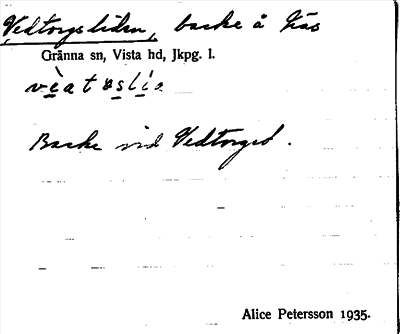 Vedtorgsliden, backe å Kås
Gränna sn, Vista hd, Jkpg. l.
Backe vid Vedtorget.
Alice Petersson 1935.